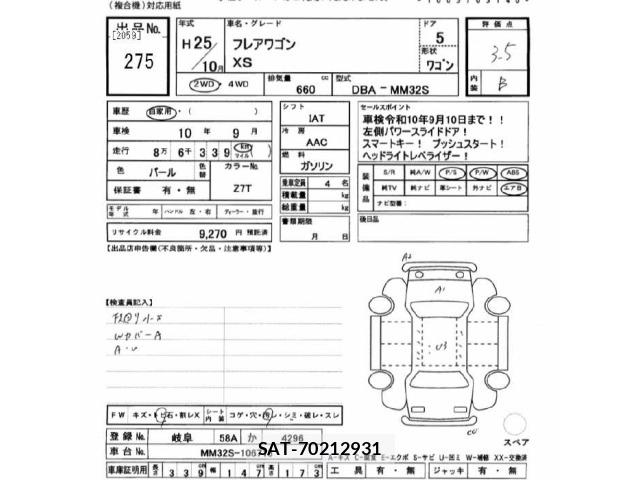 (複合機)対応用紙
出品No. 年式 車名・グレード ドア 評価点
[2059] H25 フレアワゴン 5 3.5
275 10月 XS 形状 ワゴン 内装 B
2WD・4WD 排気量 660 cc 型式 DBA-MM32S
車歴 自家用・( ) シフト IAT セールスポイント
車検 10年 9月 冷房 AAC 車検令和10年9月10日まで!!
左側パワースライドドア!
走行 8万6千339 km マイル 燃料 ガソリン スマートキー! プッシュスタート!
ヘッドライトレベライザー!
色 パール 色替 カラーNo. Z7T
保証書 有・無
乗車定員 4名
積載量 kg
総重量 kg
装備品 S/R 純A/W P/S P/W ABS
純TV 純ナビ 革シート 外ナビ エアB
ナビ型番:
モデル年式 年 ハンドル 左・右 ディーラー・並行
書類期限 月 日
後日品
リサイクル料金 9,270 円 預託済
【出品店申告欄(不良箇所・欠品・注意事項等)】
【検査員記入】
A2
A1
U3
FW キズ・トビ石・割レX シート内装 コゲ・穴・汚レ・シミ・破レ・スレ
登録No. 岐阜 58A か 4296
スペア
車台No. MM32S-106
SAT-70212931
A-キズ E-エクボ S-サビ U-凹ミ W-補修 XX-交換済
車庫証明用 長さ 339 幅 147 高さ 173 工具 有・無 ジャッキ 有・無